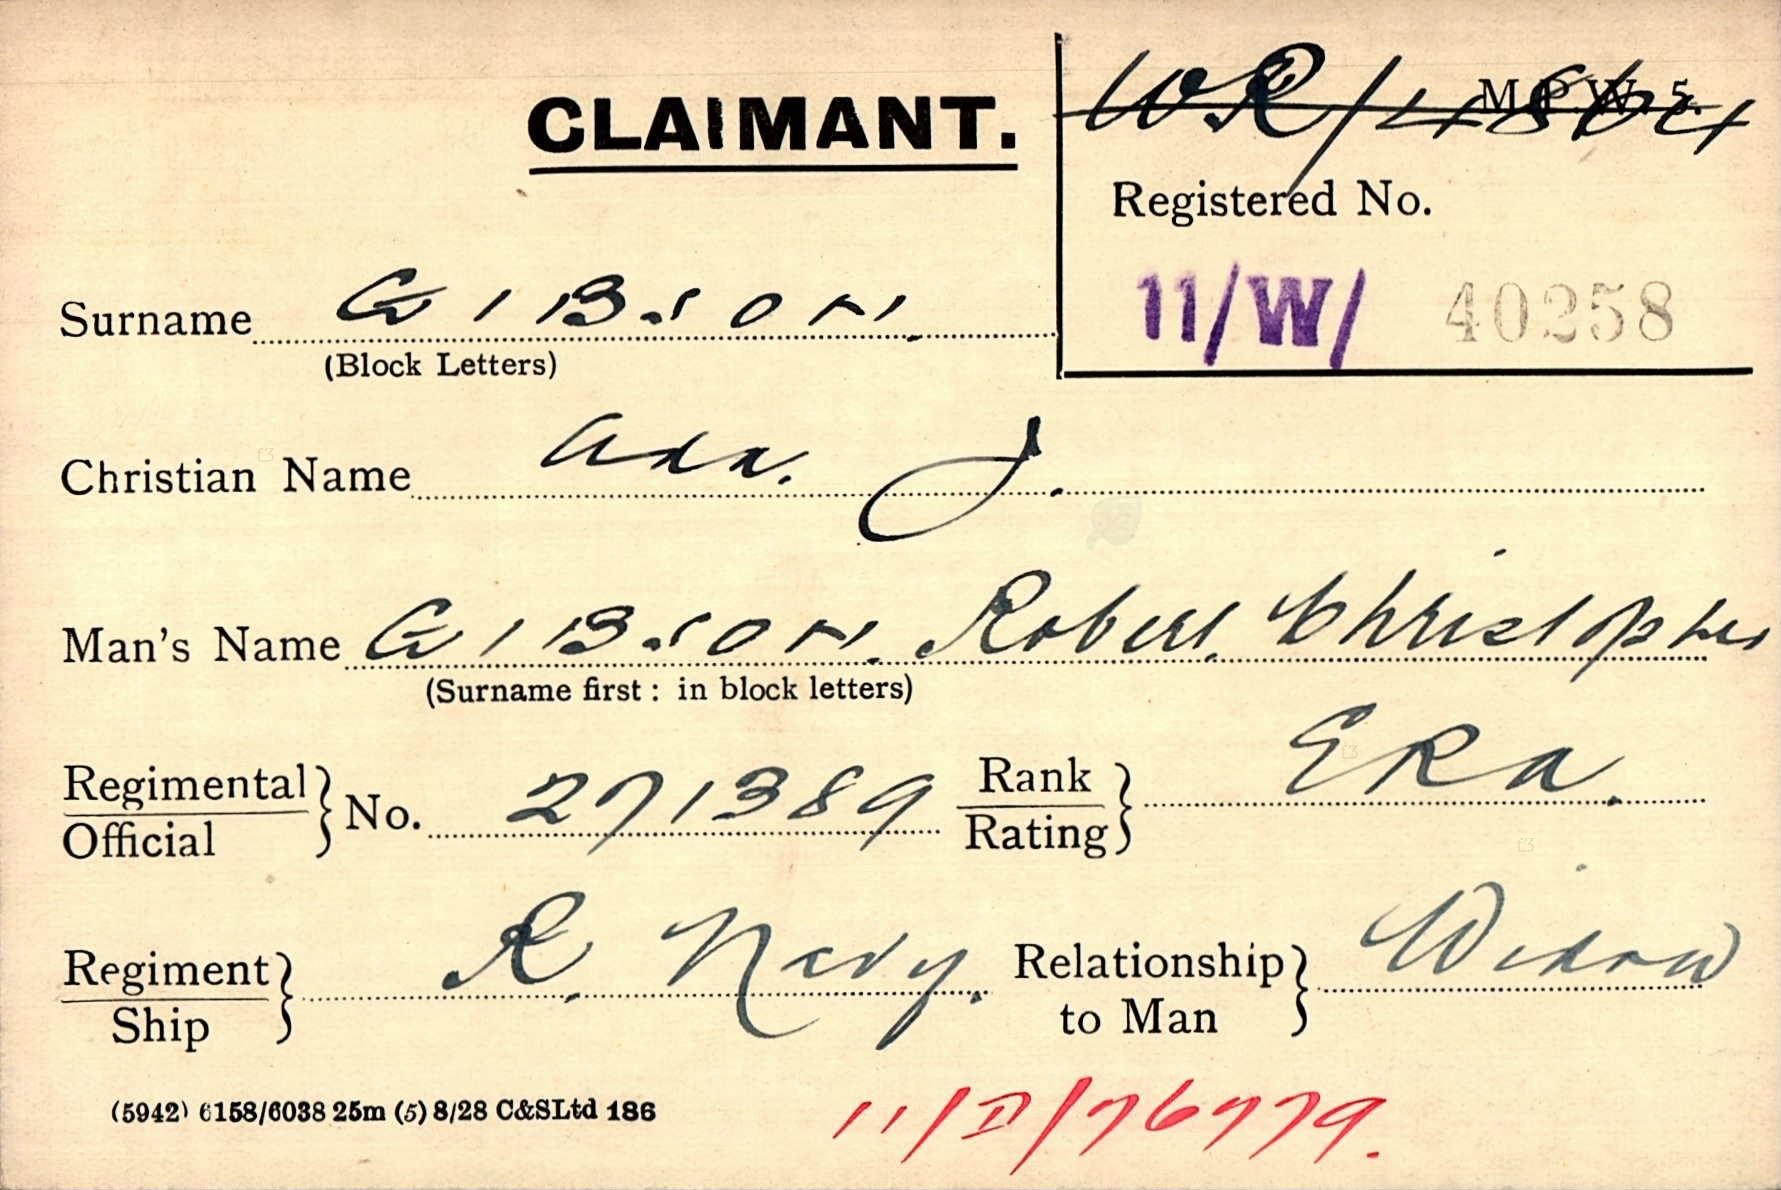 WR/14864 M.P.W. 5.
CLAIMANT.
Registered No.
11/W/ 40258
Surname GIBSON.
(Block Letters)
Christian Name Ada. J.
Man's Name GIBSON. Robert. Christopher
(Surname first : in block letters)
Regimental
Official } No. 271389 Rank
Rating } ERA.
Regiment
Ship } R. Navy. Relationship
to Man } Widow
(5942) 6158/6038 25m (5) 8/28 C&SLtd 186
11/D/76779.